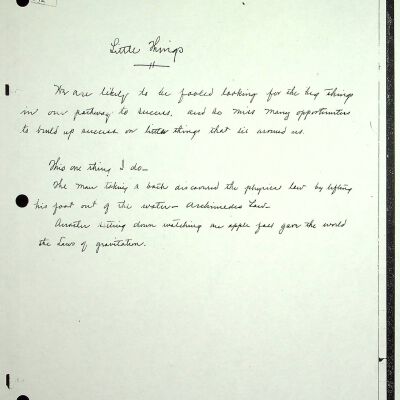 Little Things
We are likely to be fooled looking for the big things
in our pathway to success, and so miss many opportunities
to build up success on little things that lie around us.
This one thing I do—
The man taking a bath discovered the physical law by lifting
his foot out of the water— Archimedes Law—
Another sitting down watching an apple fall gave the world
the Laws of gravitation.